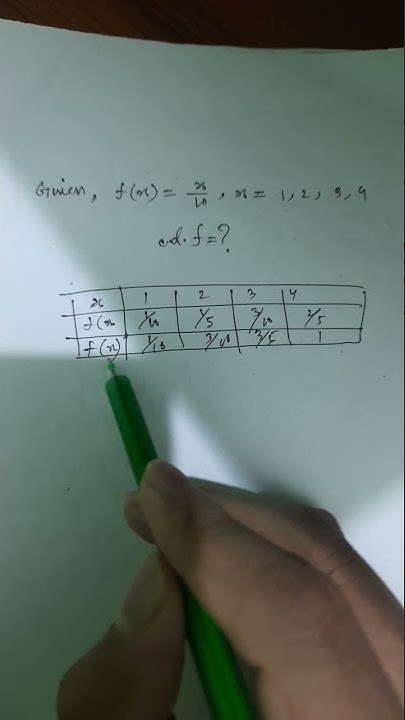 Given, f(x) = x/10, x = 1, 2, 3, 4
c.d.f = ?
x 1 2 3 4
f(x 1/10 1/5 3/10 2/5
f(x) 1/10 3/10 3/5 1